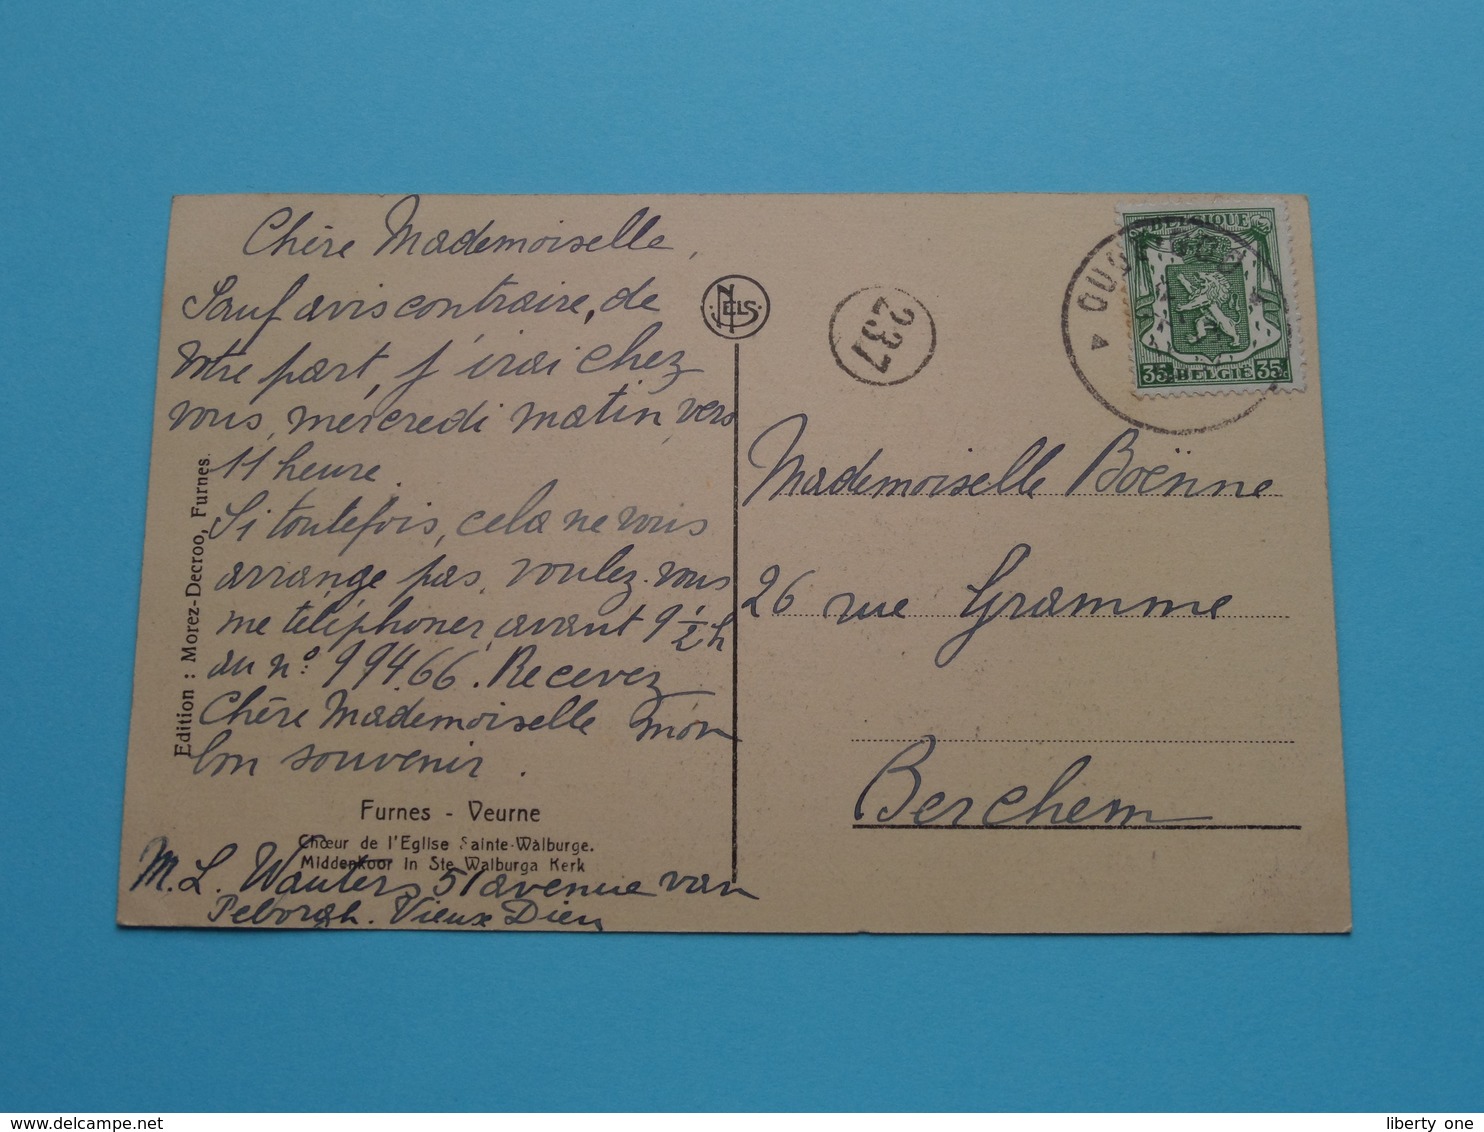 Chère Mademoiselle,
Sauf avis contraire, de
votre part, j'irai chez
vous, mercredi matin vers
11 heure.
Si toutefois, cela ne vous
arrange pas, voulez-vous
me téléphoner, avant 9 1/2 h
au n° 99466. Recevez
Chère Mademoiselle mon
bon souvenir.
Furnes - Veurne
Chœur de l'Eglise Sainte-Walburge.
Middenkoor in Ste Walburga Kerk
M. L. Wauters 51 avenue van
Peborgh. Vieux Dieu
Edition : Morez-Decroo, Furnes.
NELS
237
BELGIQUE
35c BELGIE 35c
OUDE GOD
Mademoiselle Boënne
26 rue Gramme
Berchem
www.delcampe.net
liberty one